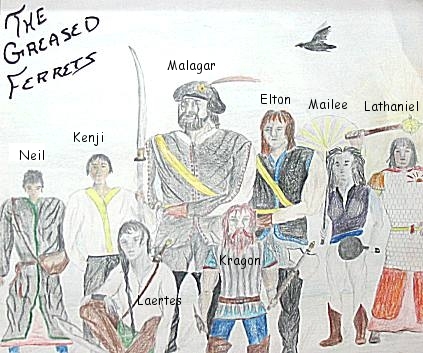 THE
GREASED
FERRETS
Malagar
Elton
Mailee
Lathaniel
Kenji
Neil
Kragon
Laertes